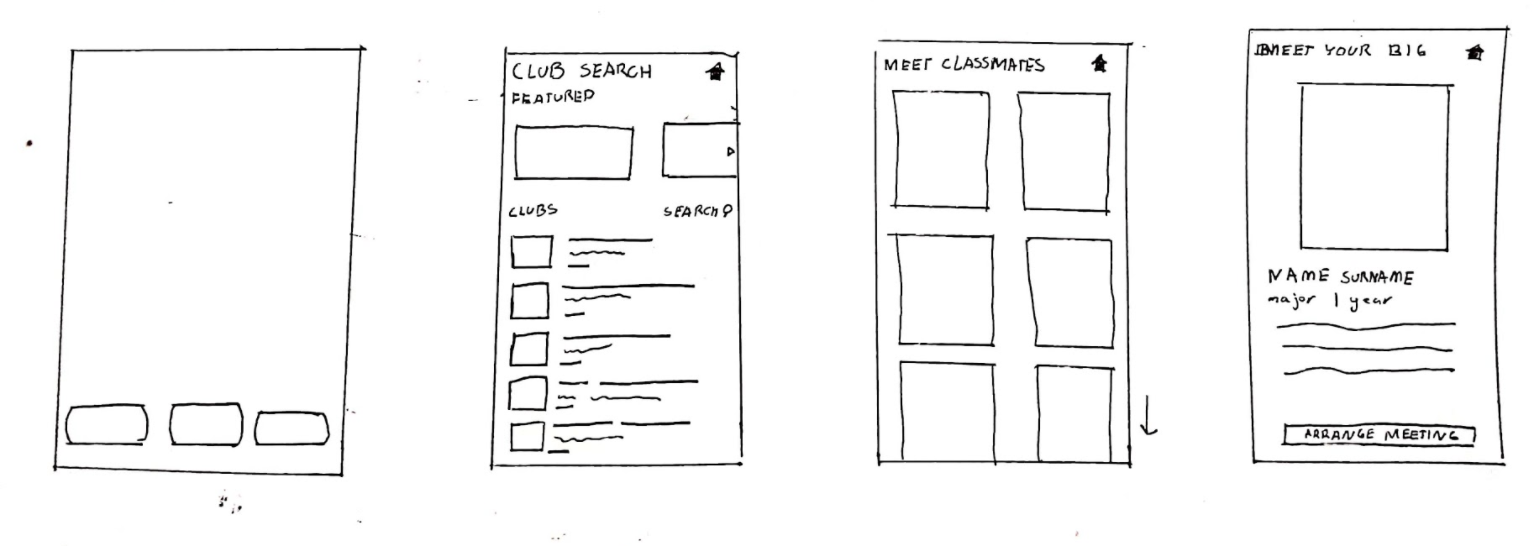 CLUB SEARCH
FEATURED
CLUBS SEARCH
MEET CLASSMATES
MEET YOUR BIG
NAME SURNAME
major | year
ARRANGE MEETING